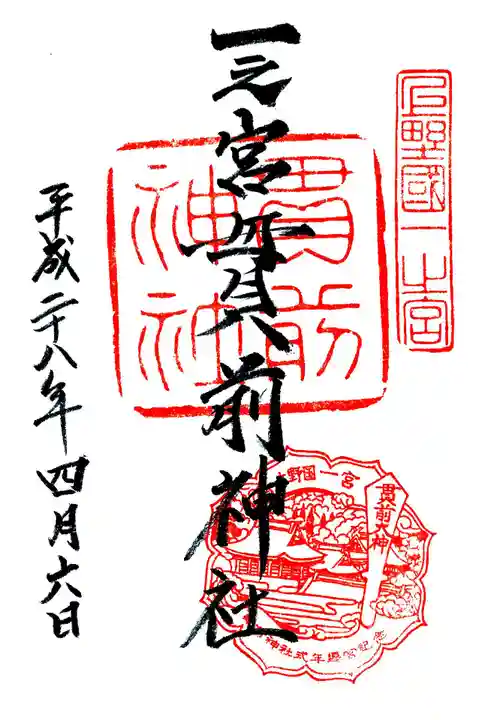 上野國一之宮
一之宮貫前神社
貫前神社
上野国一宮
貫前大神
神社式年遷宮記念
平成二十八年四月六日